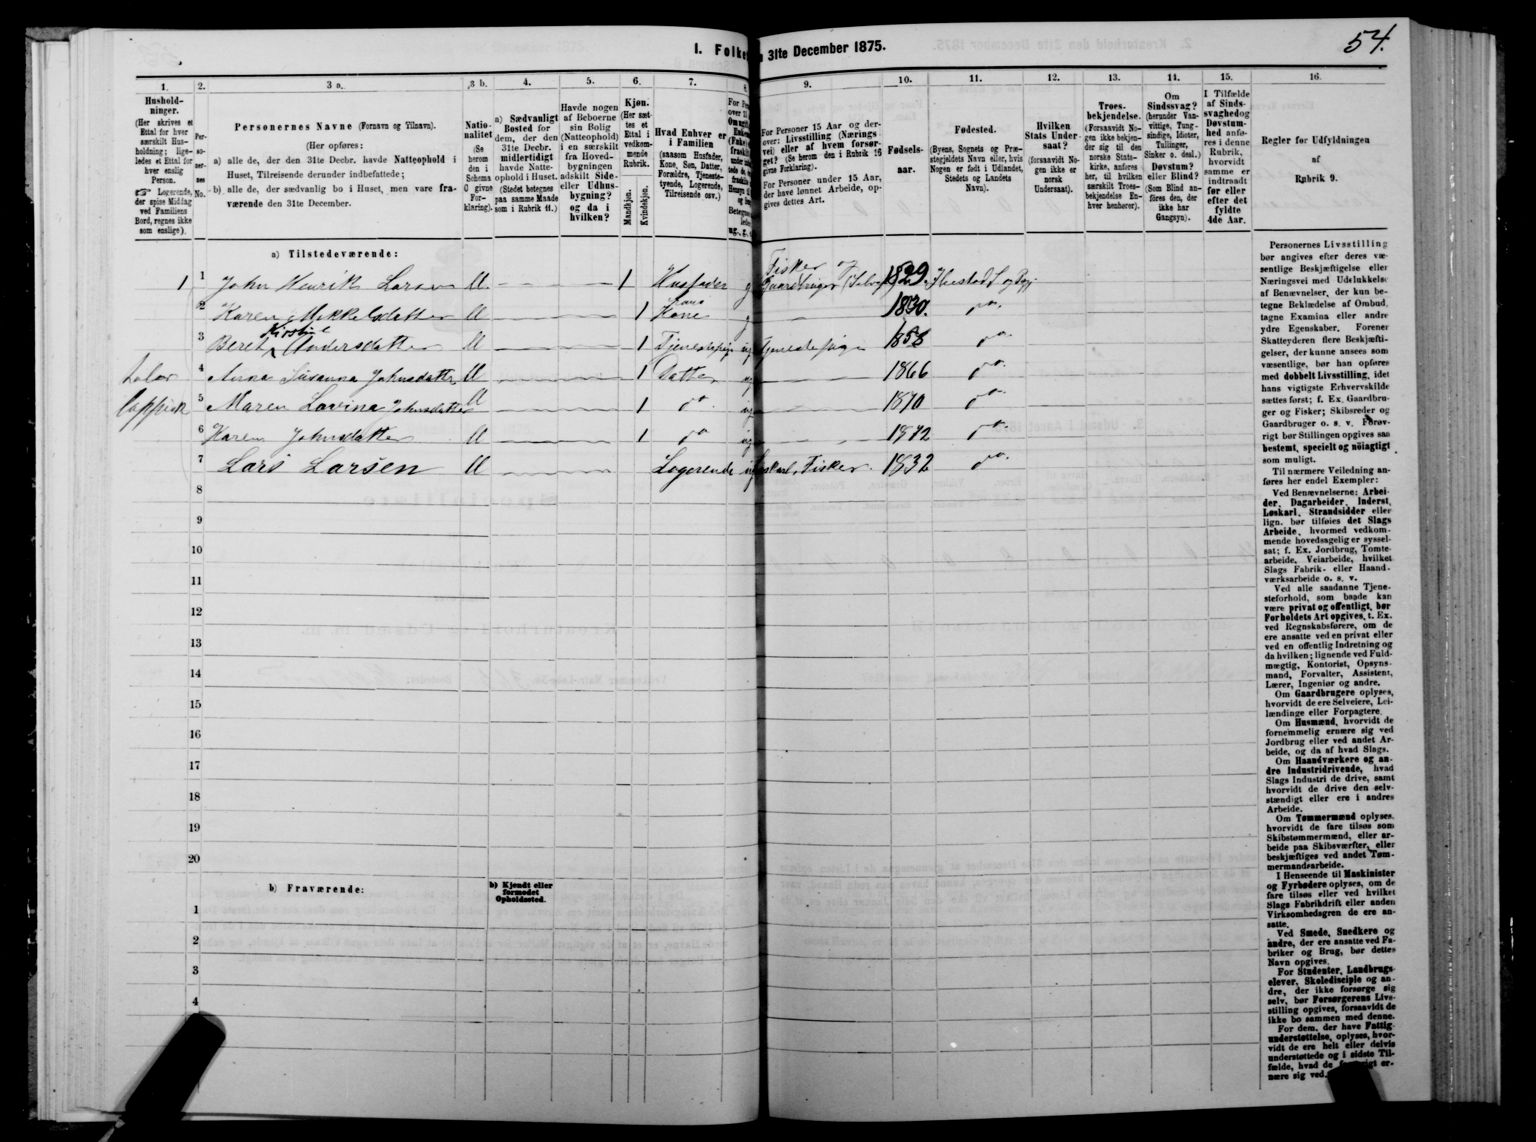 54.
I. Folke
31te December 1875.
1. 2. 3 a. 3 b. 4. 5. 6. 7. 8. 9. 10. 11. 12. 13. 14. 15. 16.
Hushold-
ninger.
(Her skrives et
Ettal for hver
særskilt Hus-
holdning; lige-
ledes et Ettal for
hver enslig
Person.
☞ Logerende,
der spise Middag
ved Familiens
Bord, regnes ikke
som enslige).
Per-
so-
ner-
nes
No.
Personernes Navne (Fornavn og Tilnavn).
(Her opføres:
a) alle de, der den 31te Decbr. havde Natteophold i
Huset, Tilreisende derunder indbefattede;
b) alle de, der sædvanlig bo i Huset, men vare fra-
værende den 31te December.
Natio-
nalitet
(Se
herom
den i
Schema
O givne
For-
klaring).
a) Sædvanligt
Bosted for
dem, der den
31te Decbr.
midlertidigt
havde Natte-
ophold i Huset.
(Stedet betegnes
paa samme Maade
som i Rubrik 11.)
Havde nogen
af Beboerne
sin Bolig
(Natteophold)
i en særskilt
fra Hoved-
bygningen
adskilt Side-
eller Udhus-
bygning?
og da i
hvilken?
Kjøn.
(Her sæt-
tes et
Ettal i
vedkom-
mende
Rubrik.
Mandkjøn.
Kvindekjøn.
Hvad Enhver er
i Familien
(saasom Husfader,
Kone, Søn, Datter,
Forældre, Tjeneste-
tyende, Logerende,
Tilreisende osv.)
For Personer 15 Aar og der-
over: Livsstilling (Nærings-
vei) eller af hvem forsør-
get? (Se herom den i Rubrik 16
givne Forklaring).
For Personer under 15 Aar,
der have lønnet Arbeide, op-
gives dettes Art.
Fødsels-
aar.
Fødested.
(Byens, Sognets og Præ-
stegjeldets Navn eller, hvis
Nogen er født i Udlandet,
Stedets og Landets
Navn).
Hvilken
Stats Under-
saat?
(forsaavidt No-
gen ikke er
norsk
Undersaat).
Troes-
bekjendelse.
(Forsaavidt No-
gen ikke bekjen-
der sig til den
norske Stats-
kirke, anføres
her, til hvilken
særskilt Troes-
bekjendelse En-
hver henhører).
Om
Sindssvag?
(herunder Van-
vittige, Tung-
sindige, Idioter,
Tullinger,
Sinker o. desl.)
Døvstum?
eller Blind?
(Som Blind an-
føres den, der
ikke har
Gangsyn).
I Tilfælde
af Sinds-
svaghed og
Døvstum-
hed anfø-
res i denne
Rubrik,
hvorvidt
samme er
indtraadt
før eller
efter det
fyldte
4de Aar.
Regler for Udfyldningen
af
Rubrik 9.
a) Tilstedeværende:
1 1 John Henrik Larsen U 1 Husfader g Fisker og Gaardbruger 1829
2 Karen Mikkelsdatter U 1 Kone g 1830. do
3 Beret Kirstine Andersdatter U 1 Tjenestepige ug Tjenestepige 1858 do
taler
lappisk
4 Anna Susanna Johnsdatter U 1 Datter ug 1866 do
5 Maren Lovina Johnsdatter U 1 do ug 1870 do
6 Karen Johnsdatter U 1 do ug 1872 do
7 Lars Larsen U Logerende ug Fisker 1832 do
8
9
10
11
12
13
14
15
16
17
18
19
20
b) Fraværende:
b) Kjendt eller
formodet
Opholdssted.
1
2
3
4
Personernes Livsstilling
bør angives efter deres væ-
sentlige Beskjæftigelse eller
Næringsvei med Udelukkelse
af Benævnelser, der kun be-
tegne Beklædelse af Ombud,
tagne Examina eller andre
ydre Egenskaber. Forener
Skatteyderen flere Beskjæfti-
gelser, der kunne ansees som
væsentlige, bør han opføres
med dobbelt Livsstilling, idet
hans vigtigste Erhvervskilde
sættes først; f. Ex. Gaardbru-
ger og Fisker; Skibsreder og
Gaardbruger o. s. v. Forøv-
rigt bør Stillingen opgives saa
bestemt, specielt og nøiagtigt
som muligt.
Til nærmere Veiledning an-
føres her endel Exempler:
Ved Benævnelserne: Arbei-
der, Dagarbeider, Inderst,
Løskarl, Strandsidder eller
lign. bør tilføies det Slags
Arbeide, hvormed vedkom-
mende hovedsagelig er syssel-
sat; f. Ex. Jordbrug, Tomte-
arbeide, Veiarbeide, hvilket
Slags Fabrik- eller Haand-
værksarbeide o. s. v.
Ved alle saadanne Tjene-
steforhold, som baade kan
være privat og offentligt, bør
Forholdets Art opgives, t. Ex.
ved Regnskabsførere, om de
ere ansatte ved en privat eller
ved en offentlig Indretning og
da hvilken; lignende ved Fuld-
mægtig, Kontorist, Opsyns-
mand, Forvalter, Assistent,
Lærer, Ingeniør og andre.
Om Gaardbrugere oplyses,
hvorvidt de ere Selveiere, Lei-
lændinge eller Forpagtere.
Om Husmænd, hvorvidt de
fornemmelig ernære sig ved
Jordbrug eller ved andet Ar-
beide, og da af hvad Slags.
Om Haandværkere og an-
dre Industridrivende, hvad
Slags Industri de drive, samt
hvorvidt de drive den selv-
stændigt eller ere i andres
Arbeide.
Om Tømmermænd oplyses,
hvorvidt de fare tilsøs som
Skibstømmermænd, eller ar-
beide paa Skibsværfter, eller
beskjæftiges ved andet Tøm-
mermandsarbeide.
I Henseende til Maskinister
og Fyrbødere oplyses, om de
fare tilsøs eller ved hvilket
Slags Fabrikdrift eller anden
Virksomhedsgren de ere an-
satte.
Ved Smede, Snedkere og
andre, der ere ansatte ved Fa-
briker og Brug, bør dettes
Navn opgives.
For Studenter, Landbrugs-
elever, Skoledisciple og an-
dre, der ikke forsørge sig
selv, bør Forsørgerens Livs-
stilling opgives, forsaavidt de
ikke bo sammen med denne.
For dem, der have Fattig-
understøttelse, oplyses, hvor-
vidt de ere helt eller delvis
understøttede og i sidste Til-
fælde, hvad de er-
nære sig ved.